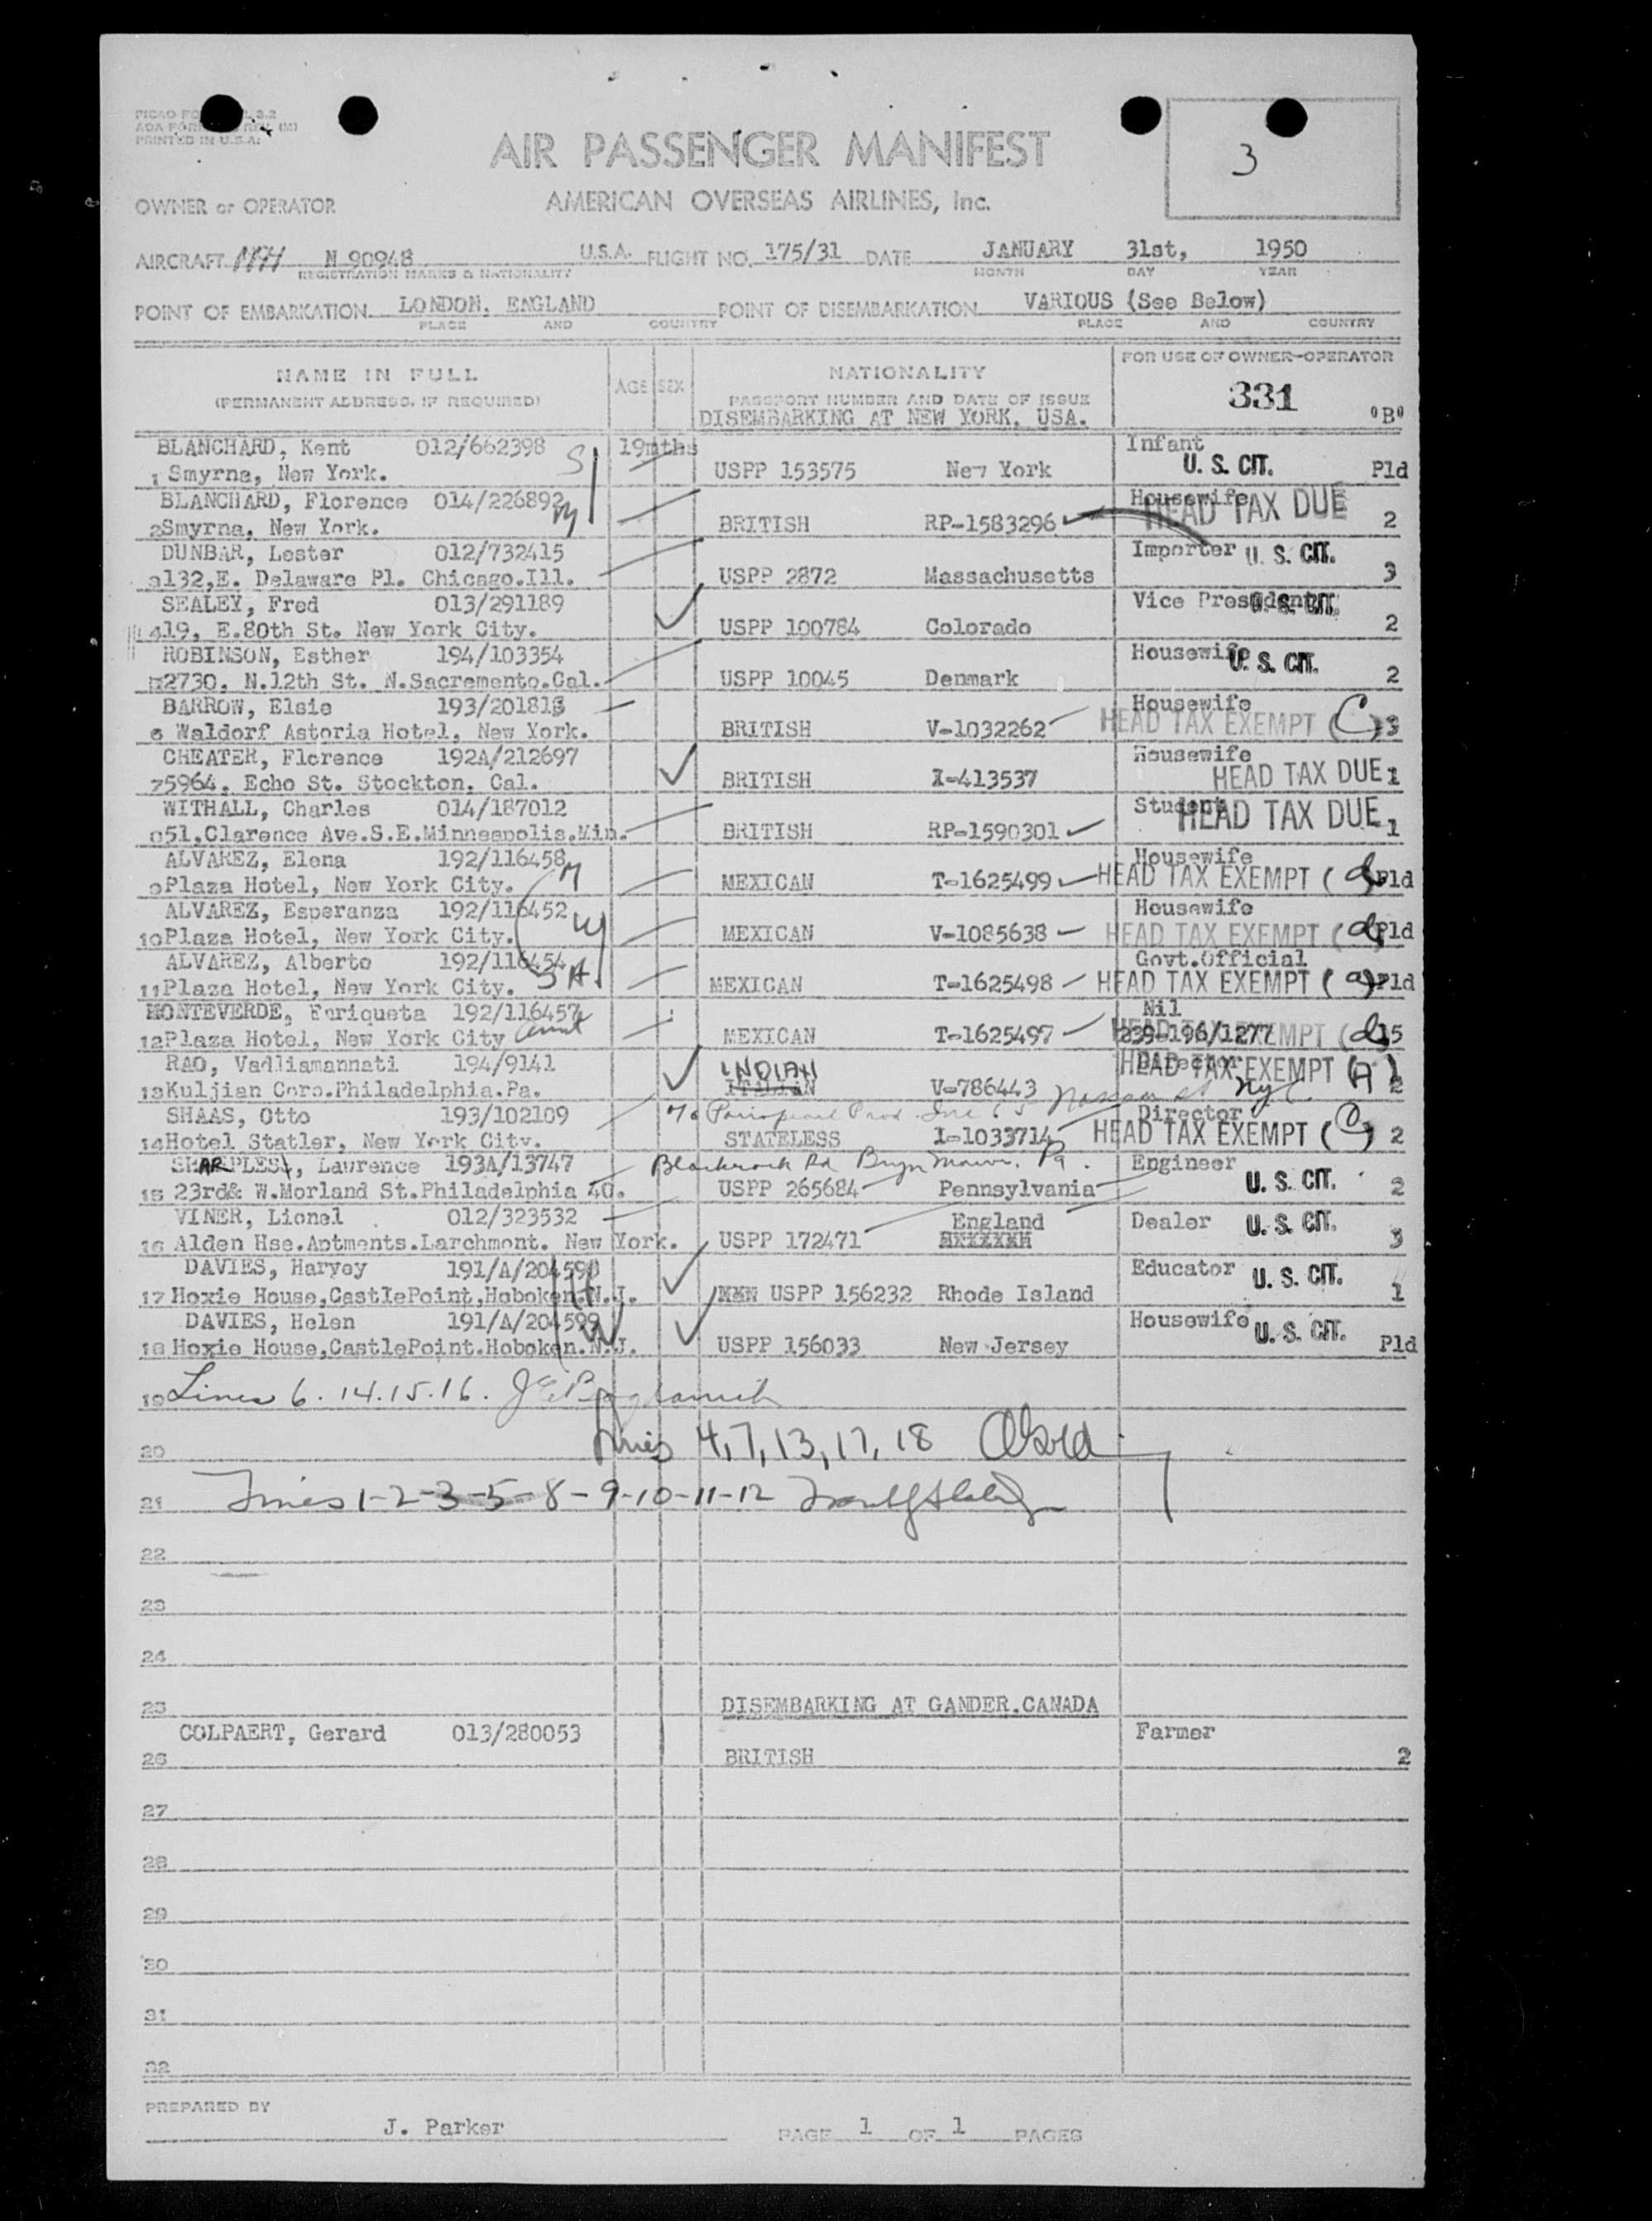 PRINTED IN U.S.A.
AIR PASSENGER MANIFEST
3
OWNER or OPERATOR AMERICAN OVERSEAS AIRLINES, Inc.
AIRCRAFT N 90948 U.S.A. FLIGHT NO. 175/31 DATE JANUARY 31st, 1950
REGISTRATION MARKS & NATIONALITY MONTH DAY YEAR
POINT OF EMBARKATION LONDON, ENGLAND POINT OF DISEMBARKATION VARIOUS (See Below)
PLACE AND COUNTRY PLACE AND COUNTRY
NAME IN FULL AGE SEX NATIONALITY FOR USE OF OWNER-OPERATOR
(PERMANENT ADDRESS, IF REQUIRED) PASSPORT NUMBER AND DATE OF ISSUE 331
DISEMBARKING AT NEW YORK, USA. "B"
BLANCHARD, Kent 012/662398 S 19mths Infant
1 Smyrna, New York. USPP 153575 New York U. S. CIT. Pld
BLANCHARD, Florence 014/226892 M Housewife HEAD TAX DUE
2 Smyrna, New York. BRITISH RP-1583296 2
DUNBAR, Lester 012/732415 Importer U. S. CIT.
3 132,E. Delaware Pl. Chicago.Ill. USPP 2872 Massachusetts 3
SEALEY, Fred 013/291189 Vice President U. S. CIT.
4 19, E.80th St. New York City. USPP 100784 Colorado 2
ROBINSON, Esther 194/103354 Housewife U. S. CIT.
5 2730, N.12th St. N.Sacremento.Cal. USPP 10045 Denmark 2
BARROW, Elsie 193/201813 Housewife
6 Waldorf Astoria Hotel, New York. BRITISH V-1032262 HEAD TAX EXEMPT (C) 3
CHEATER, Florence 192A/212697 Housewife
7 5964, Echo St. Stockton, Cal. BRITISH I-413537 HEAD TAX DUE 1
WITHALL, Charles 014/187012 Student HEAD TAX DUE
8 51,Clarence Ave.S.E.Minneapolis.Min. BRITISH RP-1590301 1
ALVAREZ, Elena 192/116458 M Housewife
9 Plaza Hotel, New York City. MEXICAN T-1625499 HEAD TAX EXEMPT (d) Pld
ALVAREZ, Esperanza 192/116452 W Housewife
10 Plaza Hotel, New York City. MEXICAN V-1085638 HEAD TAX EXEMPT (d) Pld
ALVAREZ, Alberto 192/116454 Govt.Official
11 Plaza Hotel, New York City. H MEXICAN T-1625498 HEAD TAX EXEMPT (a) Pld
MONTEVERDE, Enriqueta 192/116457 Nil
12 Plaza Hotel, New York City Aunt MEXICAN T-1625497 239-196/1277 HEAD TAX EXEMPT (d) 15
RAO, Vadliamannati 194/9141 INDIAN Director HEAD TAX EXEMPT (A)
13 Kuljian Corp.Philadelphia.Pa. ITALIAN V-786443 2
SHAAS, Otto 193/102109 Prod. Inc 65 Nassau St NYC. Director
14 Hotel Statler, New York City. STATELESS I-1033714 HEAD TAX EXEMPT (C) 2
SHARPLESS, Lawrence 193A/13747 Blackrock Rd Bryn Mawr, Pa. Engineer
15 23rd& W.Morland St.Philadelphia 40. USPP 265684 Pennsylvania U. S. CIT. 2
VINER, Lionel 012/323532 England Dealer U. S. CIT.
16 Alden Hse.Aptments.Larchmont. New York. USPP 172471 3
DAVIES, Harvey 191/A/204598 H Educator U. S. CIT.
17 Hoxie House,CastlePoint,Hoboken.N.J. USPP 156232 Rhode Island 1
DAVIES, Helen 191/A/204599 W Housewife U. S. CIT.
18 Hoxie House,CastlePoint.Hoboken.N.J. USPP 156033 New Jersey Pld
19 Lines 6. 14.15.16.
20 Lines 4, 7, 13, 17, 18
21 Lines 1-2-3-5-8-9-10-11-12
22
23
24
25 DISEMBARKING AT GANDER.CANADA
COLPAERT, Gerard 013/280053 Farmer
26 BRITISH 2
27
28
29
30
31
32
PREPARED BY
J. Parker PAGE 1 OF 1 PAGES